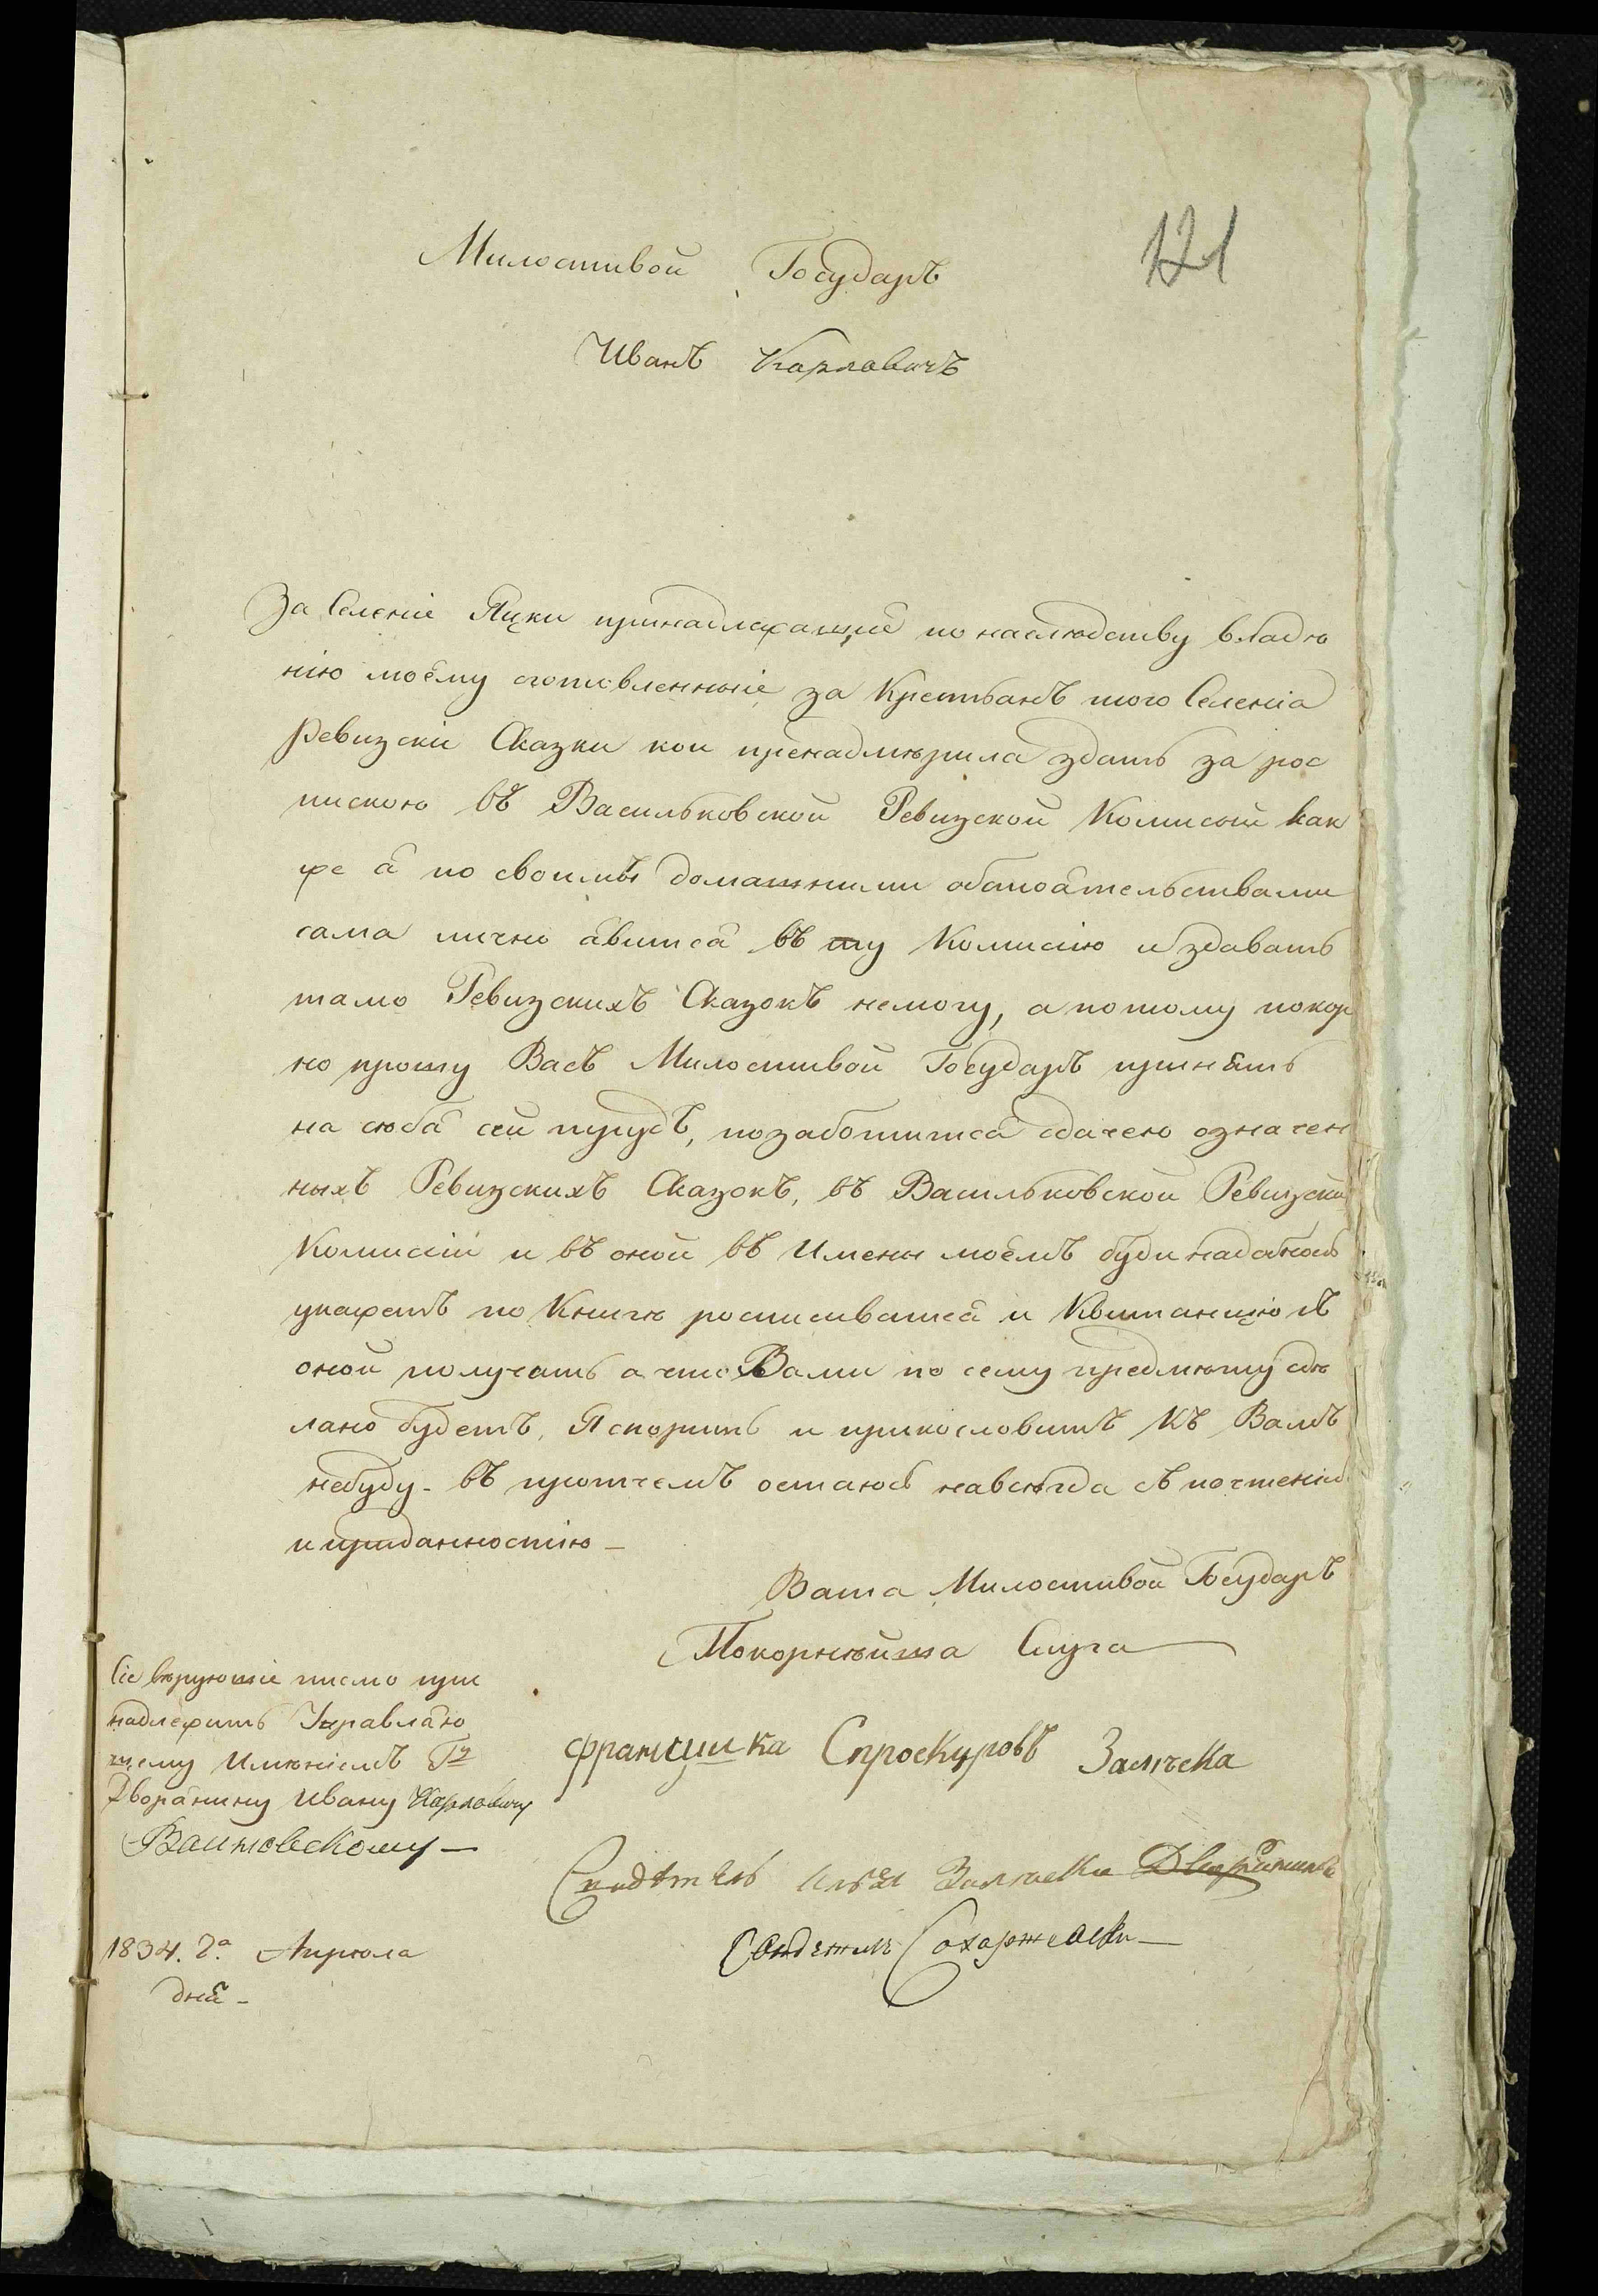 121
Милостивой Государь
Иванъ Карловичъ
За Селеніе Яцки принадлежащие по наслюдству владѣ
нію моему зготовленныіе за Крестьянъ того Селенія
Ревизскіи Сказки кои пренадмѣрила здать за рос
пискою въ Васильковской Ревизской Комисыи как
же я по своимъ домашними обстоятельствами
сама лично явится въ ту Комисию и здавать
тамо Ревизскихъ Сказокъ немогу, а потому покор
но прошу Васъ Милостивой Государь принять
на себя сей трудъ, позаботится сдачею означен
ныхъ Ревизскихъ Сказокъ, въ Васильковской Ревизской
Комиссіи и въ оной въ Имени моемъ буди надобность
укажетъ по Книгѣ росписыватся и Квитанцію съ
оной получать а что Вами по сему предмѣту сдѣ
лано будетъ, Я спорить и прикословить Къ Вамъ
небуду. въ протчемъ остаюсь навсѣгда съ почтеніем
и приданностію
Ваша Милостивой Государь
Покорнѣйша Слуга
Сіе вѣрующіе писмо при
надлежитъ Управляю
щему Имѣніемъ Гу
Дворянину Ивану Карловичу
францишка Спроскуровъ Залѣска
Свидѣтель Залѣски Дворянинъ
1834. 2а Апрѣля
дня